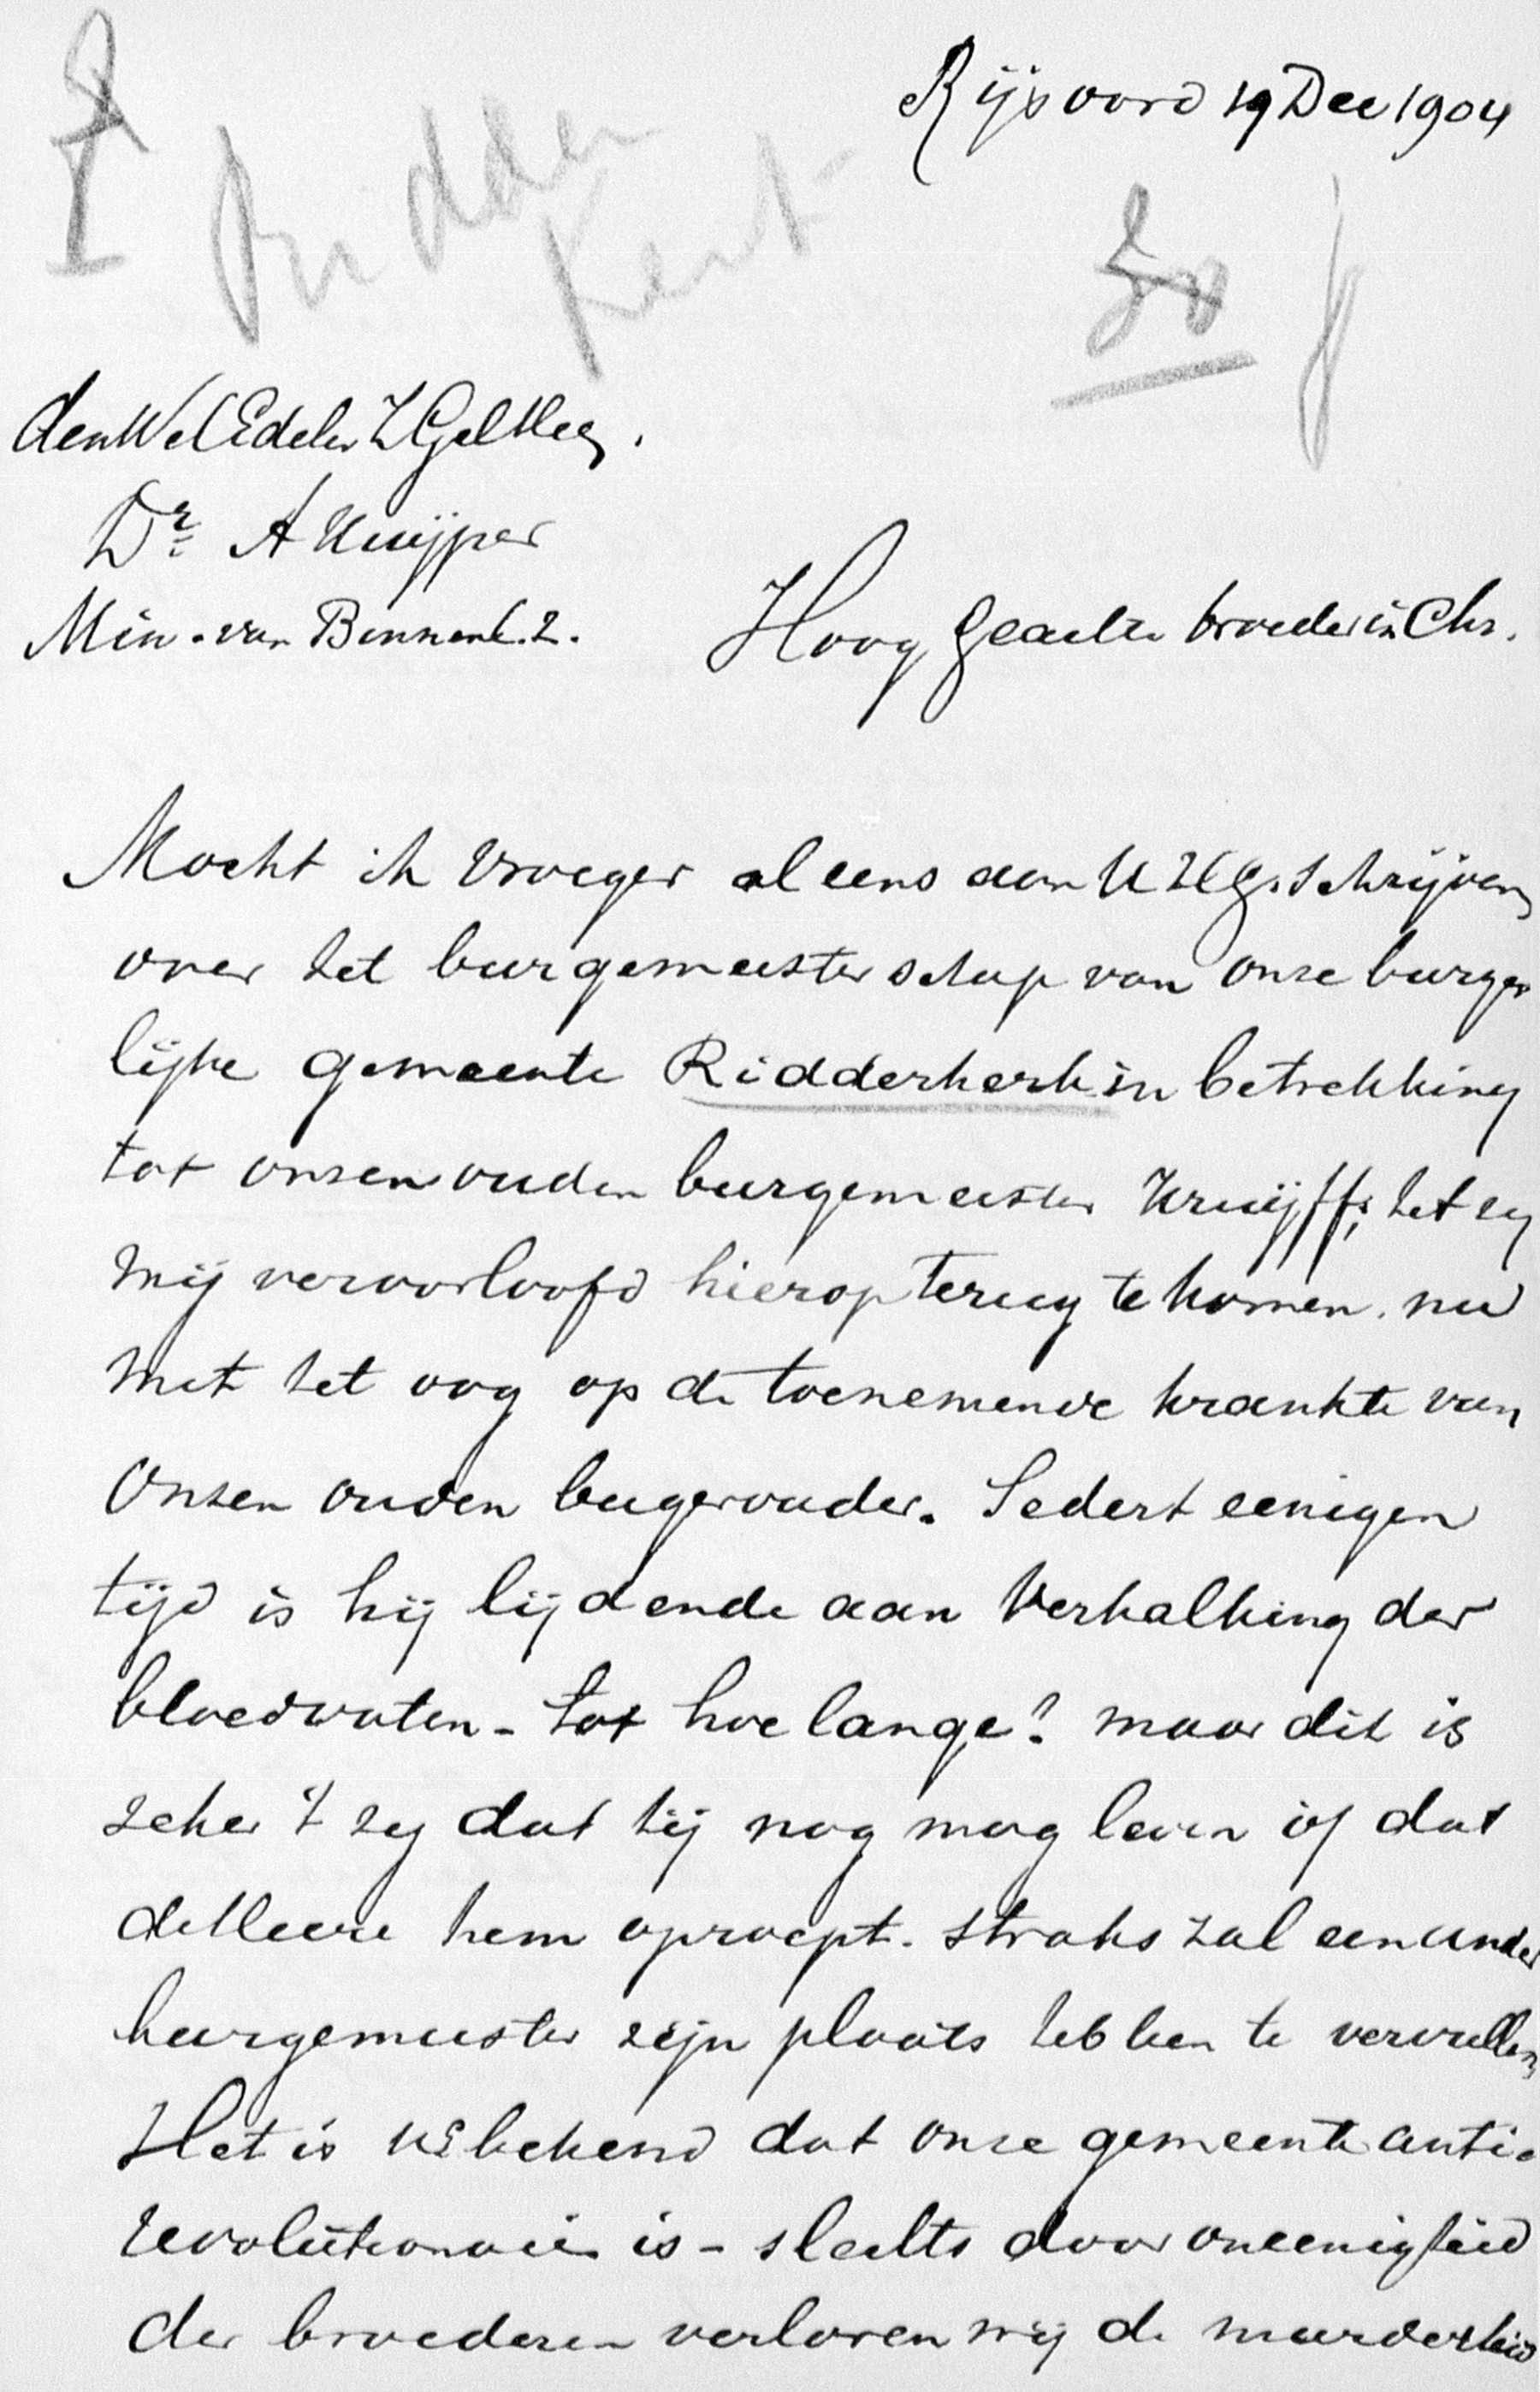 Rijsoord 19 Dec 1904
Ridder
kerk
den WelEdelen HGel Heer.
Dr. A Kuijper
Min. van Binnenl. Z.
Hoog geachte broeder in Chr.
Mocht ik vroeger al eens aan U HEg. schrijven
over het burgemeesterschap van onze burger
lijke gemeente Ridderkerk in betrekking
tot onzen ouden burgemeester Kruijff; het zij
mij veroorloofd hierop terug te komen. nu
met het oog op de toenemende krankte van
Onzen ouden burgervader. Sedert eenigen
tijd is hij lijdende aan Verkalking der
bloedvaten - tot hoe lange? maar dit is
zeker 't zij dat hij nog mag leven of dat
de Heere hem oproept. straks zal een ander
burgemeester zijn plaats hebben te vervullen
Het is UE bekend dat onze gemeente anti-
revolutionair is - slechts door oneenigheid
der broederen verloren wij de meerderheid